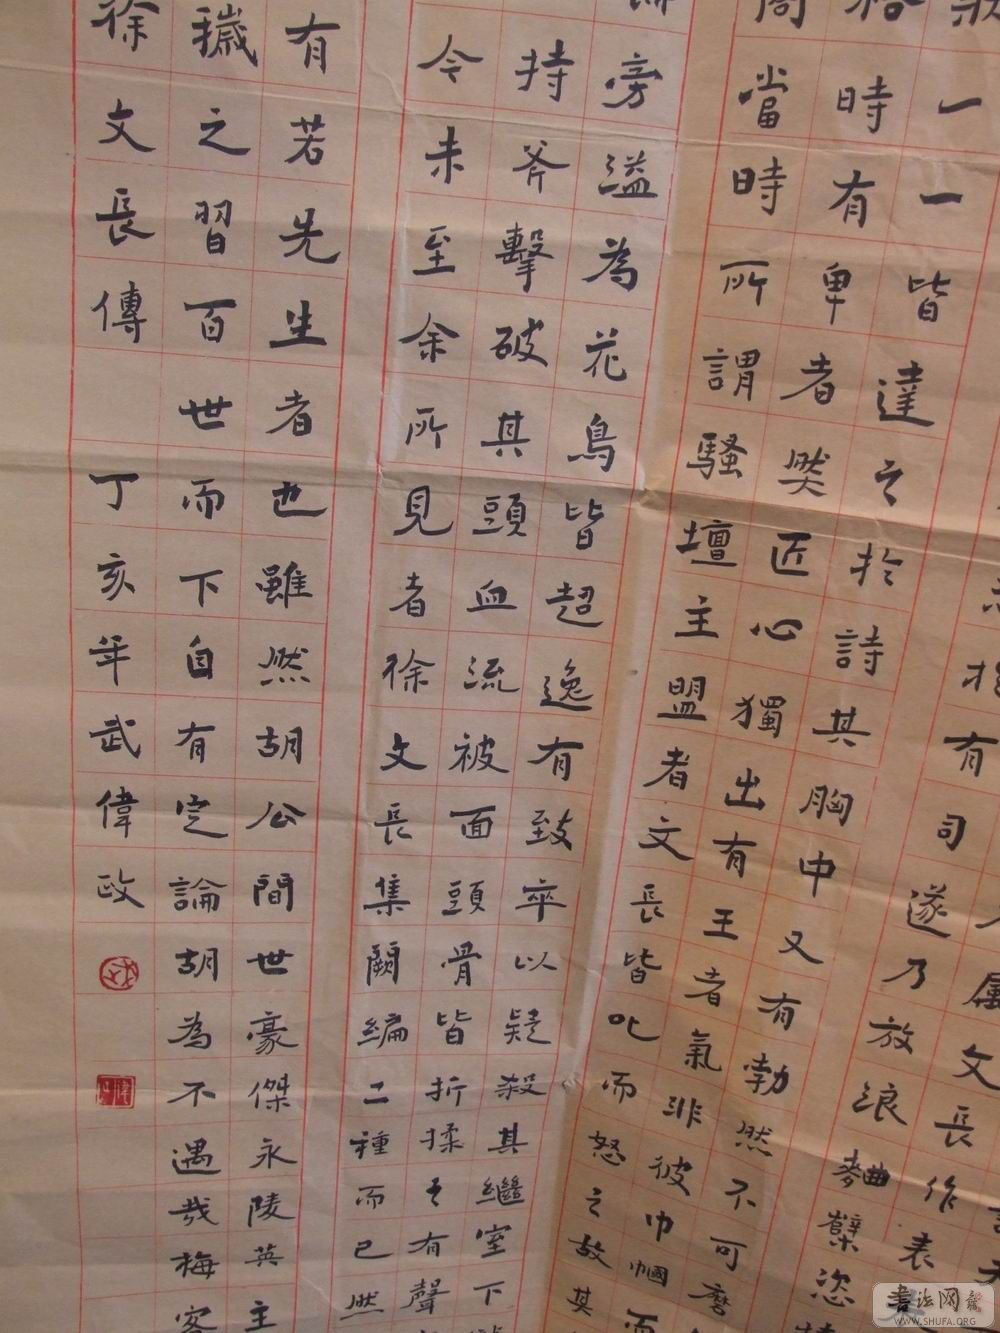 屬文長作表
有司遂乃放浪麴蘖恣
一一皆達之於詩其胸中又有勃然不可磨
格時有卑者然匠心獨出有王者氣非彼巾幗而
當時所謂騷壇主盟者文長皆叱而怒之故其
旁溢為花鳥皆超逸有致卒以疑殺其繼室下
持斧擊破其頭血流被面頭骨皆折揉之有聲
令未至余所見者徐文長集闕編二種而已然
有若先生者也雖然胡公間世豪傑永陵英主
穢之習百世而下自有定論胡為不遇哉梅客
徐文長傳 丁亥年武偉政
書法网
WWW.SHUFA.ORG